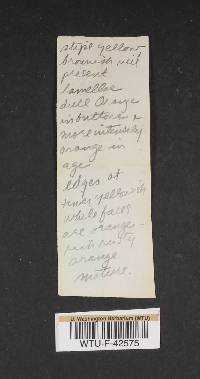 stipe yellow
brownish veil
present
lamellae
dull Orange
in buttons &
more intensely
orange in
age
edges at
times yellowish
while faces
are orange -
rusty
orange
mature.
U. Washington Herbarium (WTU)
WTU-F-42575